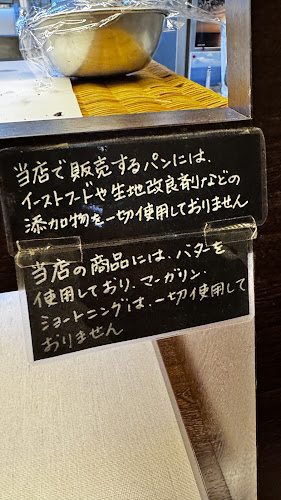 当店で販売するパンには、
イーストフードや生地改良剤などの
添加物を一切使用しておりません
当店の商品には、バターを
使用しており、マーガリン・
ショートニングは、一切使用して
おりません